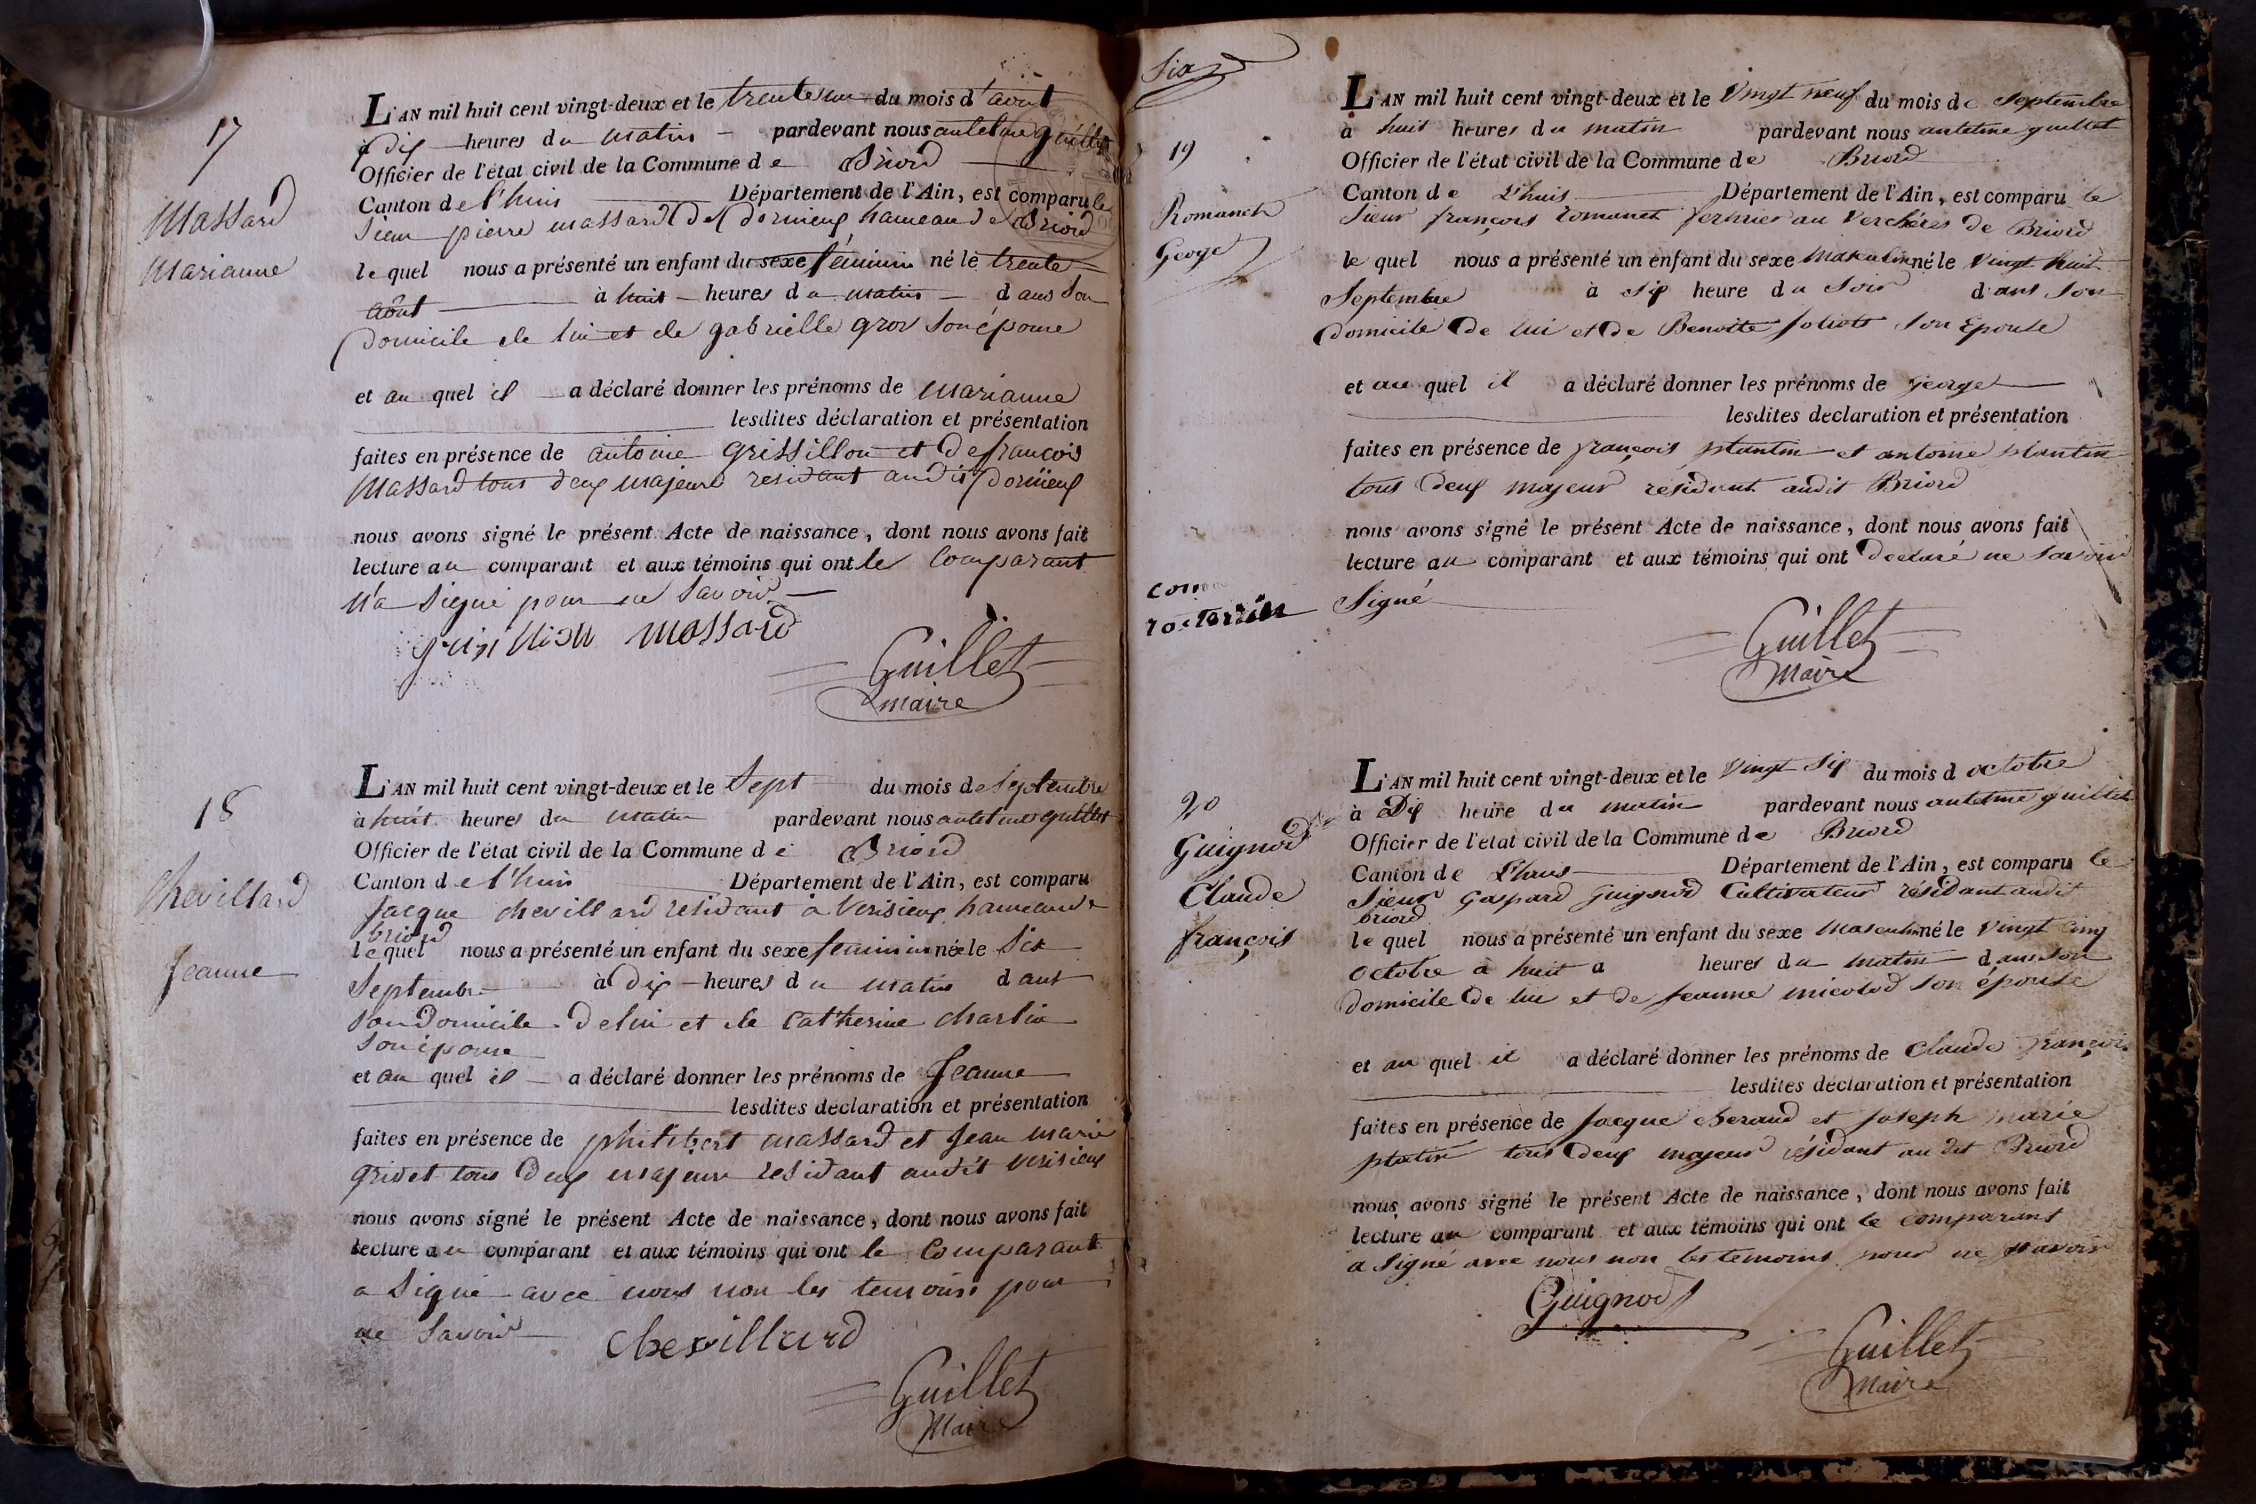 17
Massard
Marianne
L'AN mil huit cent vingt-deux et le trente un du mois d'aout
à dix heures du matin pardevant nous antelme guillet
Officier de l'état civil de la Commune de Briord
Canton de l'huis Département de l'Ain, est comparu le
sieur pierre massard de dornieux hameau de Briord
lequel nous a présenté un enfant du sexe féminin né le trente
août à huit heures du matin dans son
domicile de lui et de gabrielle gros son épouse
et au quel il a déclaré donner les prénoms de marianne
lesdites déclaration et présentation
faites en présence de antoine grissillon et de francois
Massard tous deux majeurs residant audit dornieux
nous avons signé le présent Acte de naissance, dont nous avons fait
lecture au comparant et aux témoins qui ont le comparant
n'a signé pour ne savoir
massard
Guillet
maire
18
chevillard
Jeanne
L'AN mil huit cent vingt-deux et le sept du mois de septembre
à huit heures du matin pardevant nous antelme guillet
Officier de l'état civil de la Commune de Briord
Canton de l'huis Département de l'Ain, est comparu
jacque chevillard residant à verisieux hameau de
briord
lequel nous a présenté un enfant du sexe féminin née le six
septembre à dix heures du matin dans
son domicile de lui et de Catherine charlin
son épouse
et au quel il a déclaré donner les prénoms de Jeanne
lesdites déclaration et présentation
faites en présence de philibert massard et jean marie
grivet tous deux majeurs residant audit verisieux
nous avons signé le présent Acte de naissance, dont nous avons fait
lecture au comparant et aux témoins qui ont le comparant
a signé avec nous non les temoins pour
ne savoir chevillard
Guillet
Maire
Six
19
Romanet
George
L'AN mil huit cent vingt-deux et le vingt neuf du mois de septembre
à huit heures du matin pardevant nous antelme guillet
Officier de l'état civil de la Commune de Briord
Canton de L'huis Département de l'Ain, est comparu le
sieur françois romanet fermier au verchères de Briord
lequel nous a présenté un enfant du sexe masculin né le vingt huit
septembre à six heure du soir dans son
domicile de lui et de Benoite joliot son épouse
et au quel il a déclaré donner les prénoms de george
lesdites declaration et présentation
faites en présence de françois plantin et antoine plantin
tous deux majeur résidant audit Briord
nous avons signé le présent Acte de naissance, dont nous avons fait
lecture au comparant et aux témoins qui ont declaré ne savoir
signé
Guillet
Maire
20
Guignod
Claude
françois
L'AN mil huit cent vingt-deux et le vingt six du mois d octobre
à Dix heure du matin pardevant nous antelme guillet
Officier de l'état civil de la Commune de Briord
Canton de L'huis Département de l'Ain, est comparu le
sieur Gaspard guignod Cultivateur résidant audit
briord
lequel nous a présenté un enfant du sexe masculin né le vingt cinq
octobre à huit a heures du matin dans son
domicile de lui et de jeanne micolod son épouse
et au quel il a déclaré donner les prénoms de claude françois
lesdites déclaration et présentation
faites en présence de jacque cheraud et joseph marie
platin tous deux majeur résidant au dit Briord
nous avons signé le présent Acte de naissance, dont nous avons fait
lecture au comparant et aux témoins qui ont le comparant
a signé avec nous non les temoins pour ne savoir
Guignod
Guillet
Maire